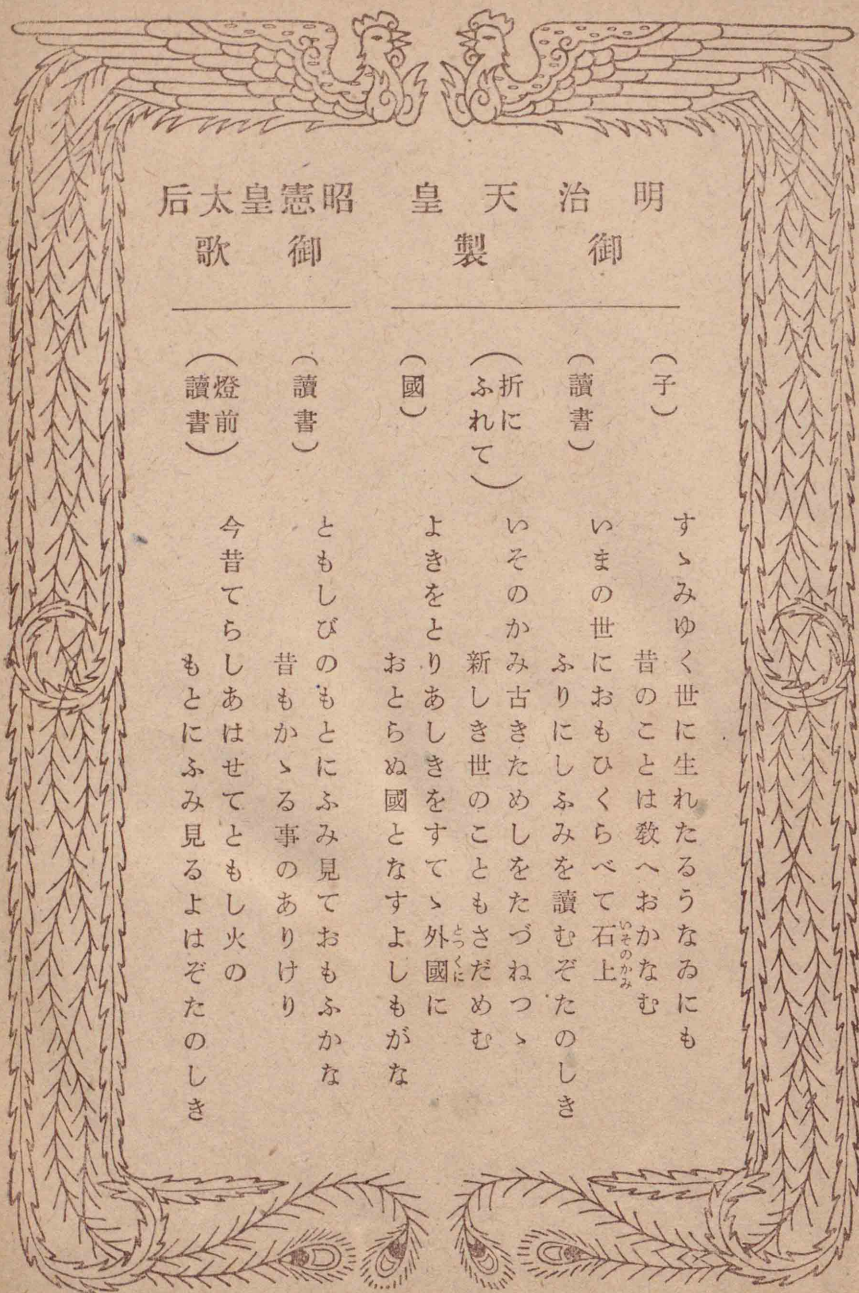 明治天皇
御製
(子)
すゝみゆく世に生れたるうなゐにも
昔のことは敎へおかなむ
(讀書)
いまの世におもひくらべて石上
いそのかみ
ふりにしふみを讀むぞたのしき
(折に
ふれて)
いそのかみ古きためしをたづねつゝ
新しき世のこともさだめむ
(國)
よきをとりあしきをすてゝ外國に
とつくに
おとらぬ國となすよしもがな
昭憲皇太后
御歌
(讀書)
ともしびのもとにふみ見ておもふかな
昔もかゝる事のありけり
(燈前
讀書)
今昔てらしあはせてともし火の
もとにふみ見るよはぞたのしき